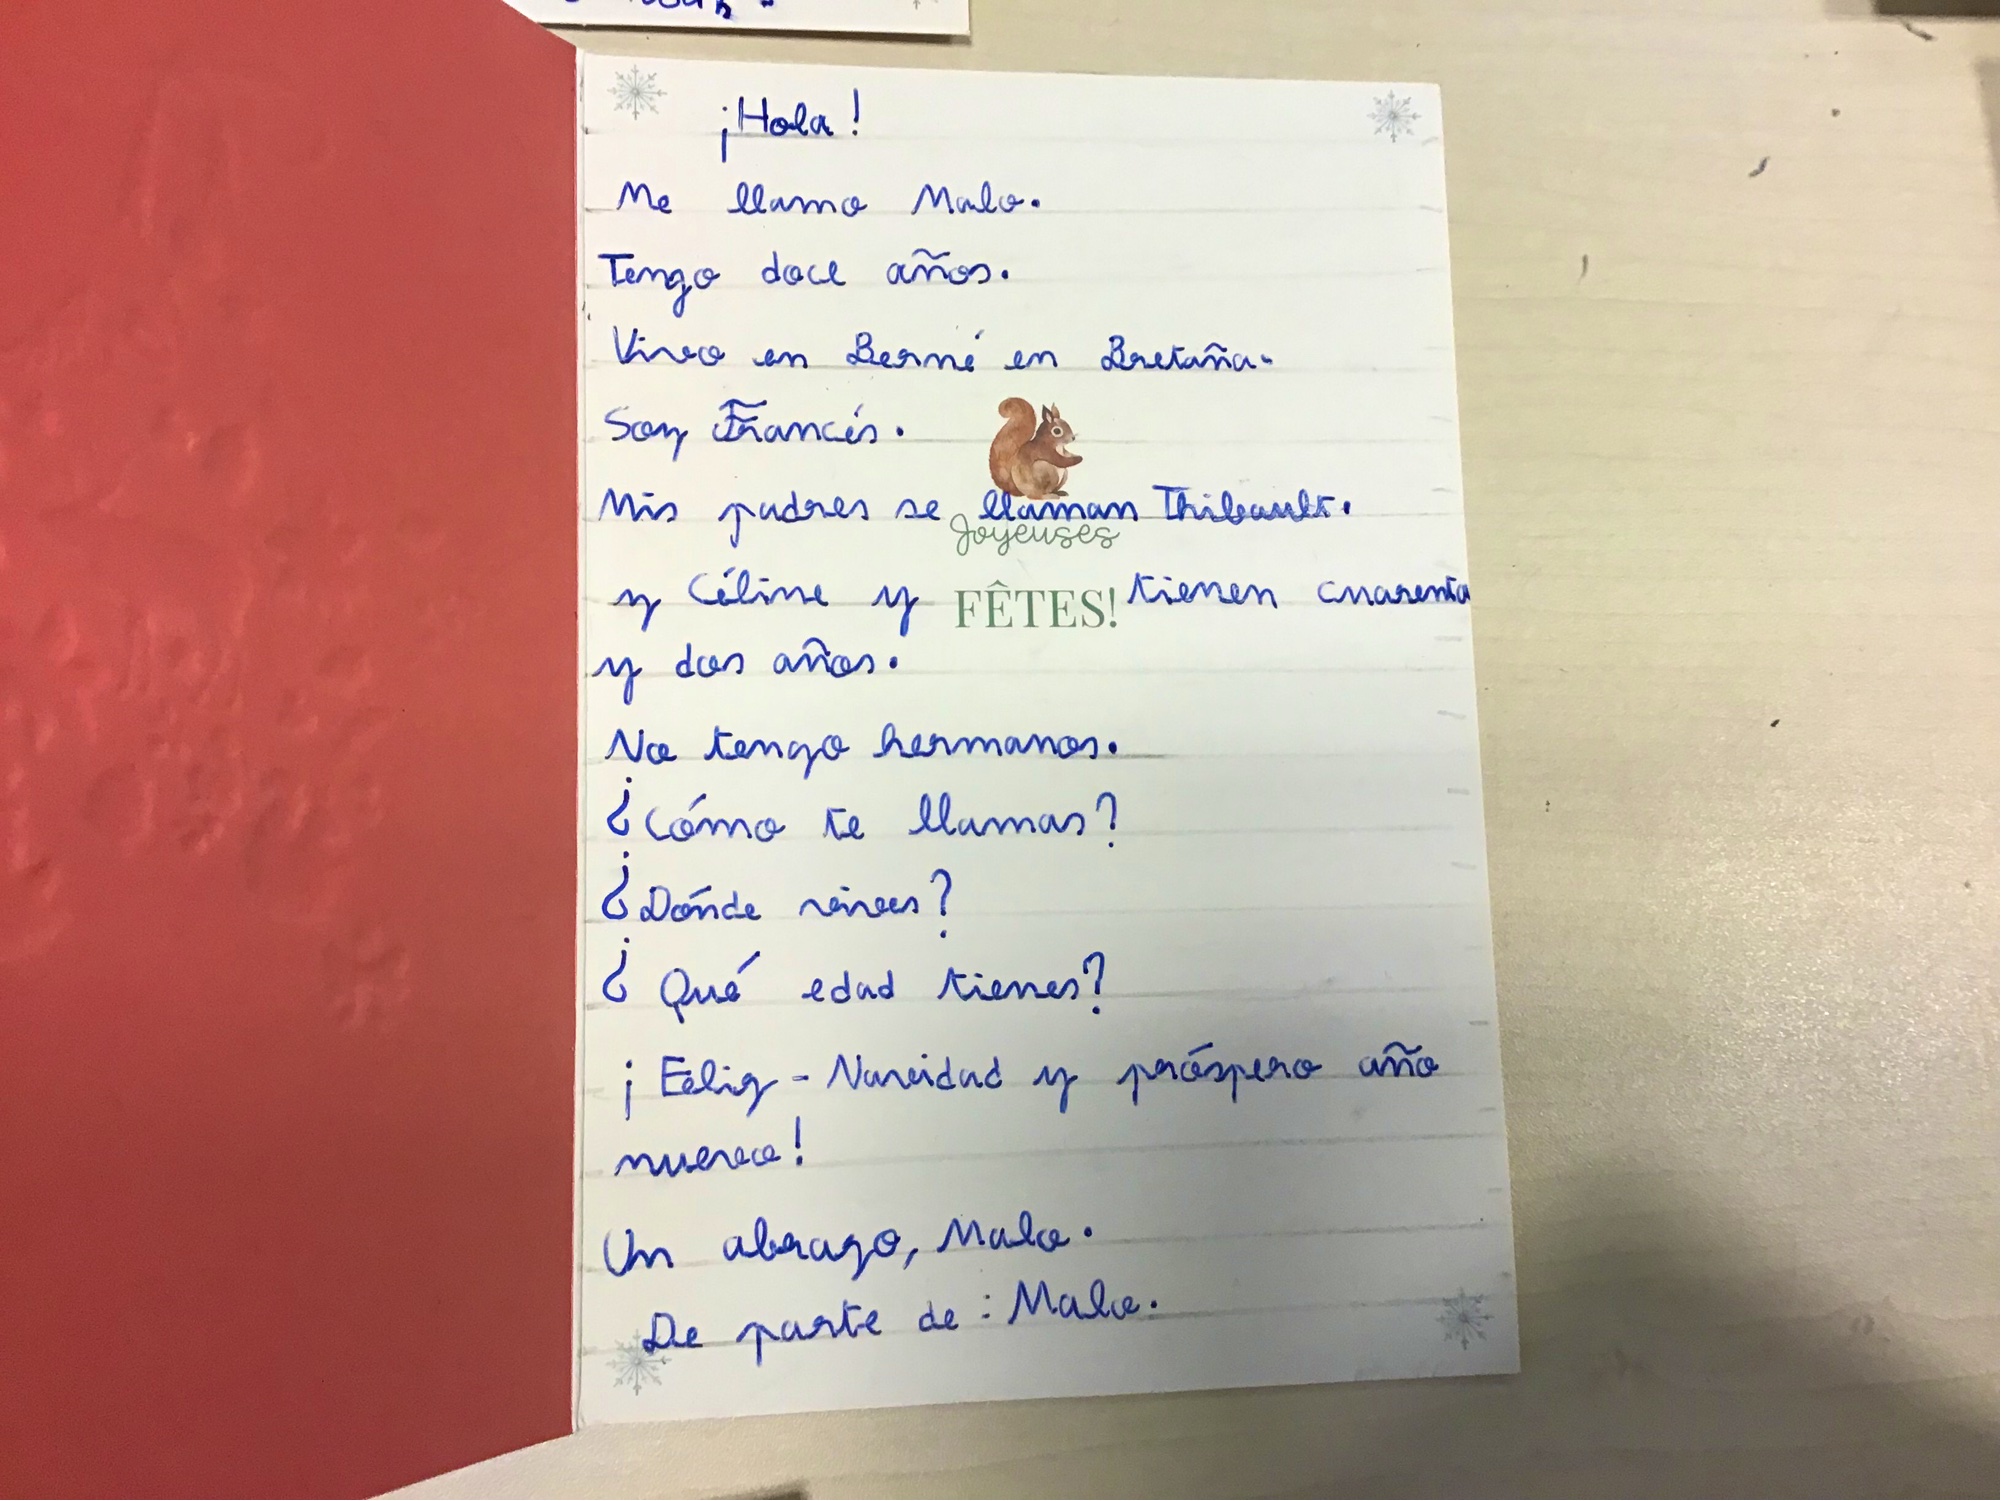 ¡Hola!
Me llamo Malo.
Tengo doce años.
Vivo en Berné en Bretaña.
Soy Francés.
Mis padres se llaman Thibault.
Joyeuses
y Céline y tienen cuarenta
FÊTES!
y dos años.
No tengo hermanos.
¿Cómo te llamas?
¿Dónde vives?
¿Qué edad tienes?
¡Feliz - Navidad y próspero año
nuevo!
Un abrazo, Malo.
De parte de : Malo.